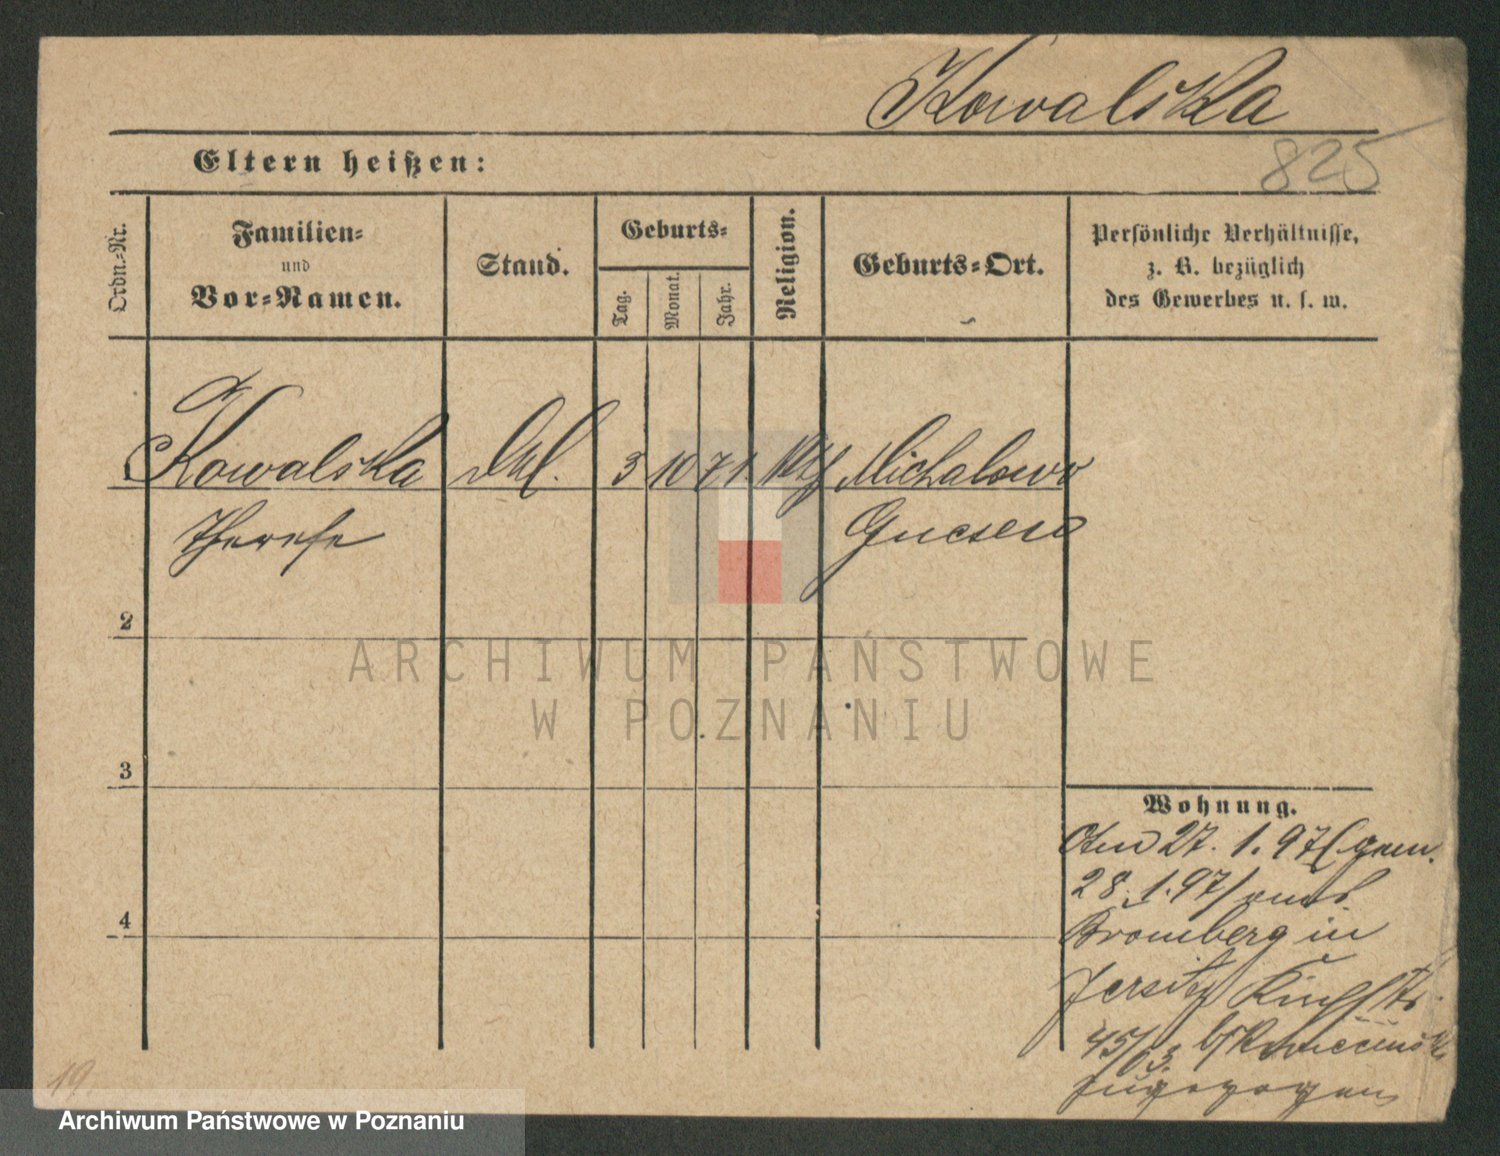 Kowalska
825
Eltern heißen:
Ordn.-Nr.
Familien-
und
Vor-Namen.
Stand.
Geburts-
Tag.
Monat.
Jahr.
Religion.
Geburts-Ort.
Persönliche Verhältnisse,
z. B. bezüglich
des Gewerbes u. s. w.
Kowalska 3 10 71 Michalowo
Therese Gnesen
2
3
4
Wohnung.
27. 1. 97 (gem.
28. 1. 97)
Bromberg in
Jersitz
45/
zugezogen
19.
ARCHIWUM PAŃSTWOWE
W POZNANIU
Archiwum Państwowe w Poznaniu